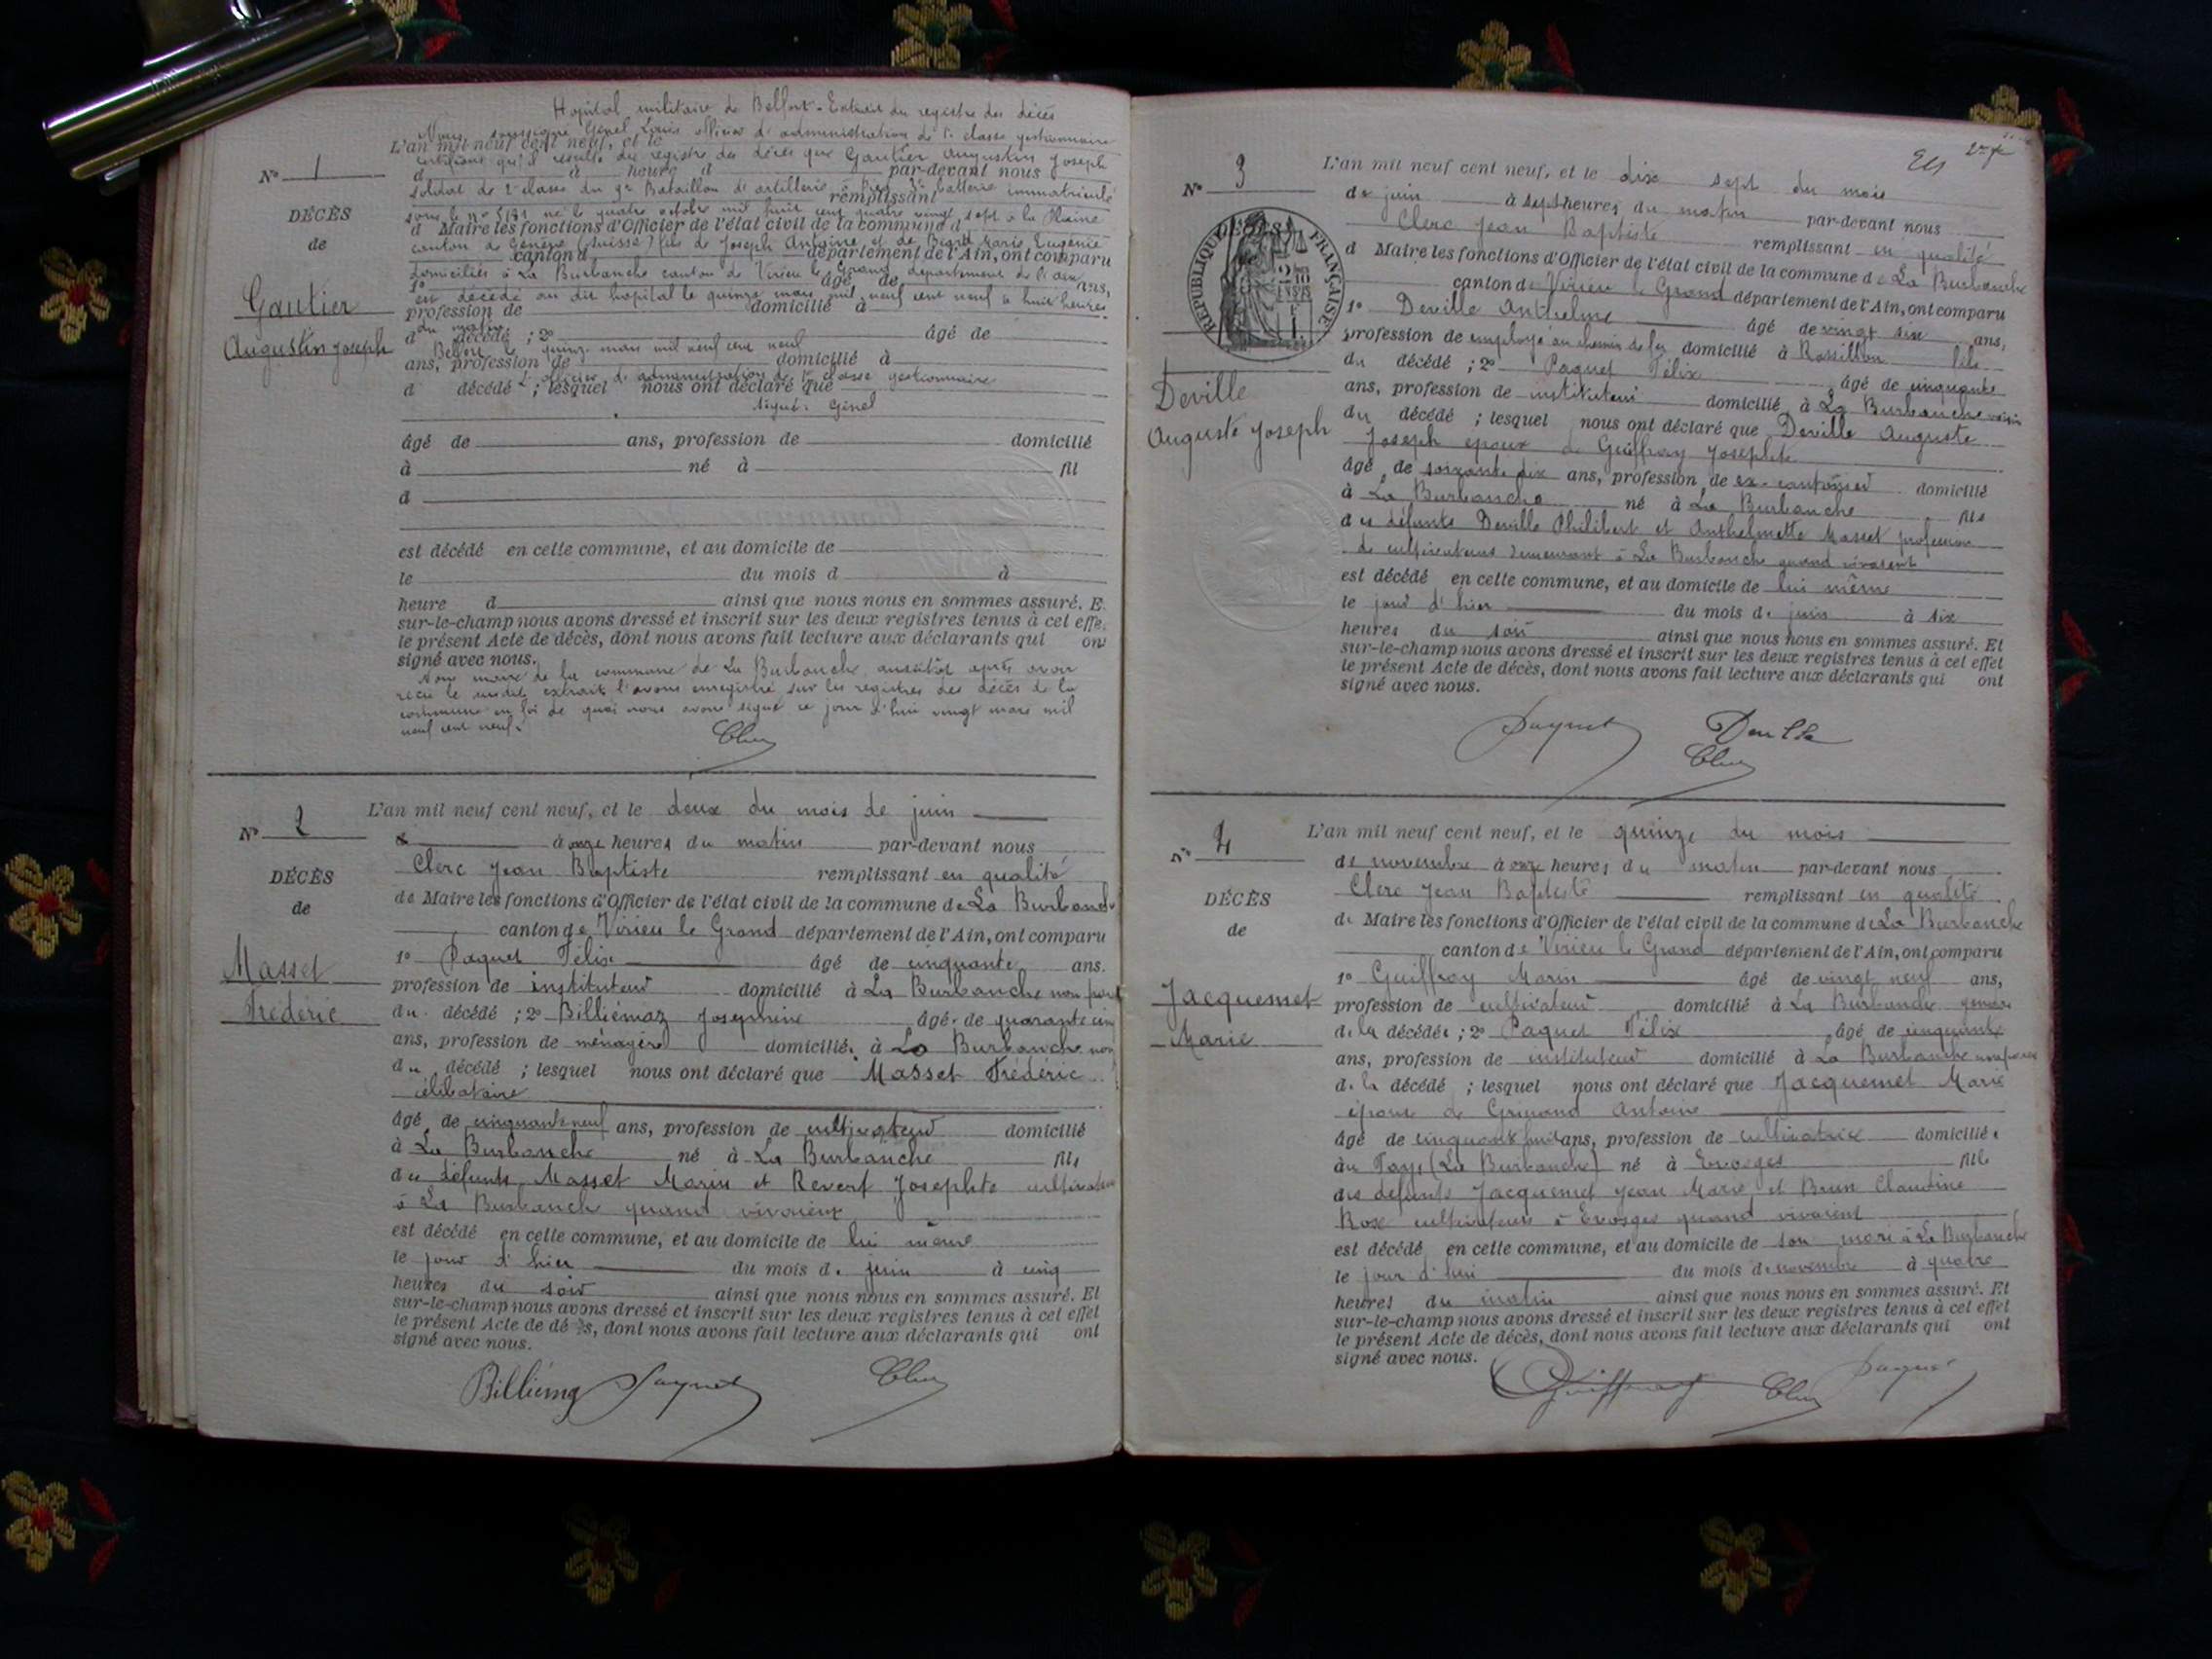 Hôpital militaire de Belfort - Extrait du registre des décès
Nous, soussigné Genel Louis officier d'administration de 1e classe gestionnaire
L'an mil neuf cent neuf, et le
certifions qu'il résulte du registre des décès que Gautier Augustin Joseph
Nº 1
d à heure d par-devant nous
soldat de 2e classe du 9e Bataillon d'artillerie à pied batterie immatriculé
remplissant
DÉCÈS
sous le nº né le quatre octobre mil huit cent quatre vingt sept à la Plaine
d Maire les fonctions d'Officier de l'état civil de la commune d
de
canton de Genève (Suisse) fils de Joseph Antoine et de Marie Eugénie
canton d département de l'Ain, ont comparu
domiciliés à La Burbanche canton de Virieu le Grand département de l'Ain
1º âgé de ans,
est décédé au dit hôpital le quinze mars mil neuf cent neuf à huit heures
Gautier
profession de domicilié à
du matin
d décédé ; 2º âgé de
Augustin Joseph
Belfort le quinze mars mil neuf cent neuf
ans, profession de domicilié à
L'officier d'administration de 1e classe gestionnaire
d décédé ; lesquel nous ont déclaré que
signé: Genel
âgé de ans, profession de domicilié
à né à fil
d
est décédé en cette commune, et au domicile de
le du mois d à
heure d ainsi que nous nous en sommes assuré. E
sur-le-champ nous avons dressé et inscrit sur les deux registres tenus à cet effe
le présent Acte de décès, dont nous avons fait lecture aux déclarants qui on
signé avec nous.
Nous maire de la commune de La Burbanche aussitôt après avoir
reçu le susdit extrait l'avons enregistré sur les registres des décès de la
commune en foi de quoi nous avons signé ce jour d'hui vingt mars mil
neuf cent neuf.
Clerc
L'an mil neuf cent neuf, et le deux du mois de juin
Nº 2
à onze heures du matin par-devant nous
Clerc Jean Baptiste remplissant en qualité
DÉCÈS
de Maire les fonctions d'Officier de l'état civil de la commune de La Burbanche
de
canton de Virieu le Grand département de l'Ain, ont comparu
1º Paquet Félix âgé de cinquante ans.
Masset
profession de instituteur domicilié à La Burbanche non parent
Frédéric
du décédé ; 2º Billiémaz Josephine âgé de quarante cinq
ans, profession de ménagère domicilié à La Burbanche non
du décédé ; lesquel nous ont déclaré que Masset Frédéric
célibataire
âgé de cinquante neuf ans, profession de cultivateur domicilié
à La Burbanche né à La Burbanche fils
des défunts Masset Marin et Revert Josephte cultivateurs
à La Burbanche quand vivaient
est décédé en cette commune, et au domicile de lui même
le jour d'hier du mois de juin à cinq
heures du soir ainsi que nous nous en sommes assuré. Et
sur-le-champ nous avons dressé et inscrit sur les deux registres tenus à cet effet
le présent Acte de décès, dont nous avons fait lecture aux déclarants qui ont
signé avec nous.
Billiémaz Paquet Clerc
L'an mil neuf cent neuf, et le dix sept du mois
Nº 3
de juin à sept heures du matin par-devant nous
Clerc Jean Baptiste remplissant en qualité
RÉPUBLIQUE FRANÇAISE
d Maire les fonctions d'Officier de l'état civil de la commune de La Burbanche
canton de Virieu le Grand département de l'Ain, ont comparu
1º Deville Anthelme âgé de vingt six ans,
profession de employé au chemin de fer domicilié à Rossillon fils
du décédé ; 2º Paquet Félix âgé de cinquante
Deville
ans, profession de instituteur domicilié à La Burbanche voisin
Auguste Joseph
du décédé ; lesquel nous ont déclaré que Deville Auguste
Joseph époux de Guiffray Josephte
âgé de soixante dix ans, profession de ex-cantonier domicilié
à La Burbanche né à La Burbanche fils
des défunts Deville Philibert et Anthelmette Masset profession
de cultivateurs demeurant à La Burbanche quand vivaient
est décédé en cette commune, et au domicile de lui même
le jour d'hier du mois de juin à six
heures du soir ainsi que nous nous en sommes assuré. Et
sur-le-champ nous avons dressé et inscrit sur les deux registres tenus à cet effet
le présent Acte de décès, dont nous avons fait lecture aux déclarants qui ont
signé avec nous.
Paquet Deville
Clerc
L'an mil neuf cent neuf, et le quinze du mois
Nº 4
de novembre à onze heures du matin par-devant nous
Clerc Jean Baptiste remplissant en qualité
DÉCÈS
de Maire les fonctions d'Officier de l'état civil de la commune de La Burbanche
de
canton de Virieu le Grand département de l'Ain, ont comparu
1º Guiffray Marin âgé de vingt neuf ans,
Jacquemet
profession de cultivateur domicilié à La Burbanche gendre
Marie
de la décédée ; 2º Paquet Félix âgé de cinquante
ans, profession de instituteur domicilié à La Burbanche non parent
de la décédé ; lesquel nous ont déclaré que Jacquemet Marie
épouse de Grinand Antoine
âgé de cinquante huit ans, profession de cultivatrice domicilié
au Fays (La Burbanche) né à Evosges fille
des défunts Jacquemet Jean Marie et Brun Claudine
Rose cultivateurs à Evosges quand vivaient
est décédé en cette commune, et au domicile de son mari à La Burbanche
le jour d'hui du mois de novembre à quatre
heures du matin ainsi que nous nous en sommes assuré. Et
sur-le-champ nous avons dressé et inscrit sur les deux registres tenus à cet effet
le présent Acte de décès, dont nous avons fait lecture aux déclarants qui ont
signé avec nous.
Guiffray Clerc Paquet